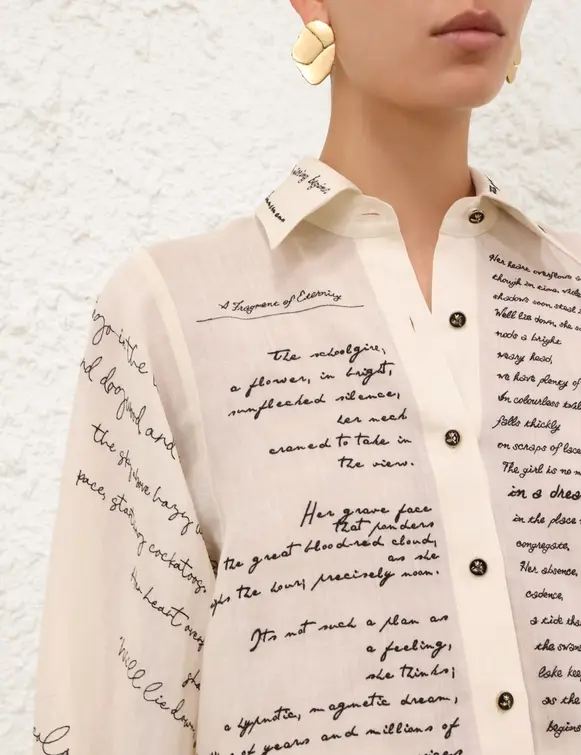 waiting begins
A Fragment of Eternity
The schoolgirl,
a flower, in bright,
sunflecked silence,
her neck
craned to take in
the view.
Her grave face
that ponders
the great blood-red cloud,
as she
the hour; precisely noon.
It's not such a plan as
a feeling,
she thinks;
a hypnotic, magnetic dream,
of years and millions of
Her heart overflows
though in time
shadows soon steal
We'll lie down, she
nods a bright
weary head,
we have plenty of
In colourless
falls thickly
on scraps of lace
The girl is no
in a
in the place
congregate,
Her absence,
cadence,
a tide
the
lake
as the
begins
and
the sky above hazy
pace, startling cockatoos.
Her heart
We'll lie down